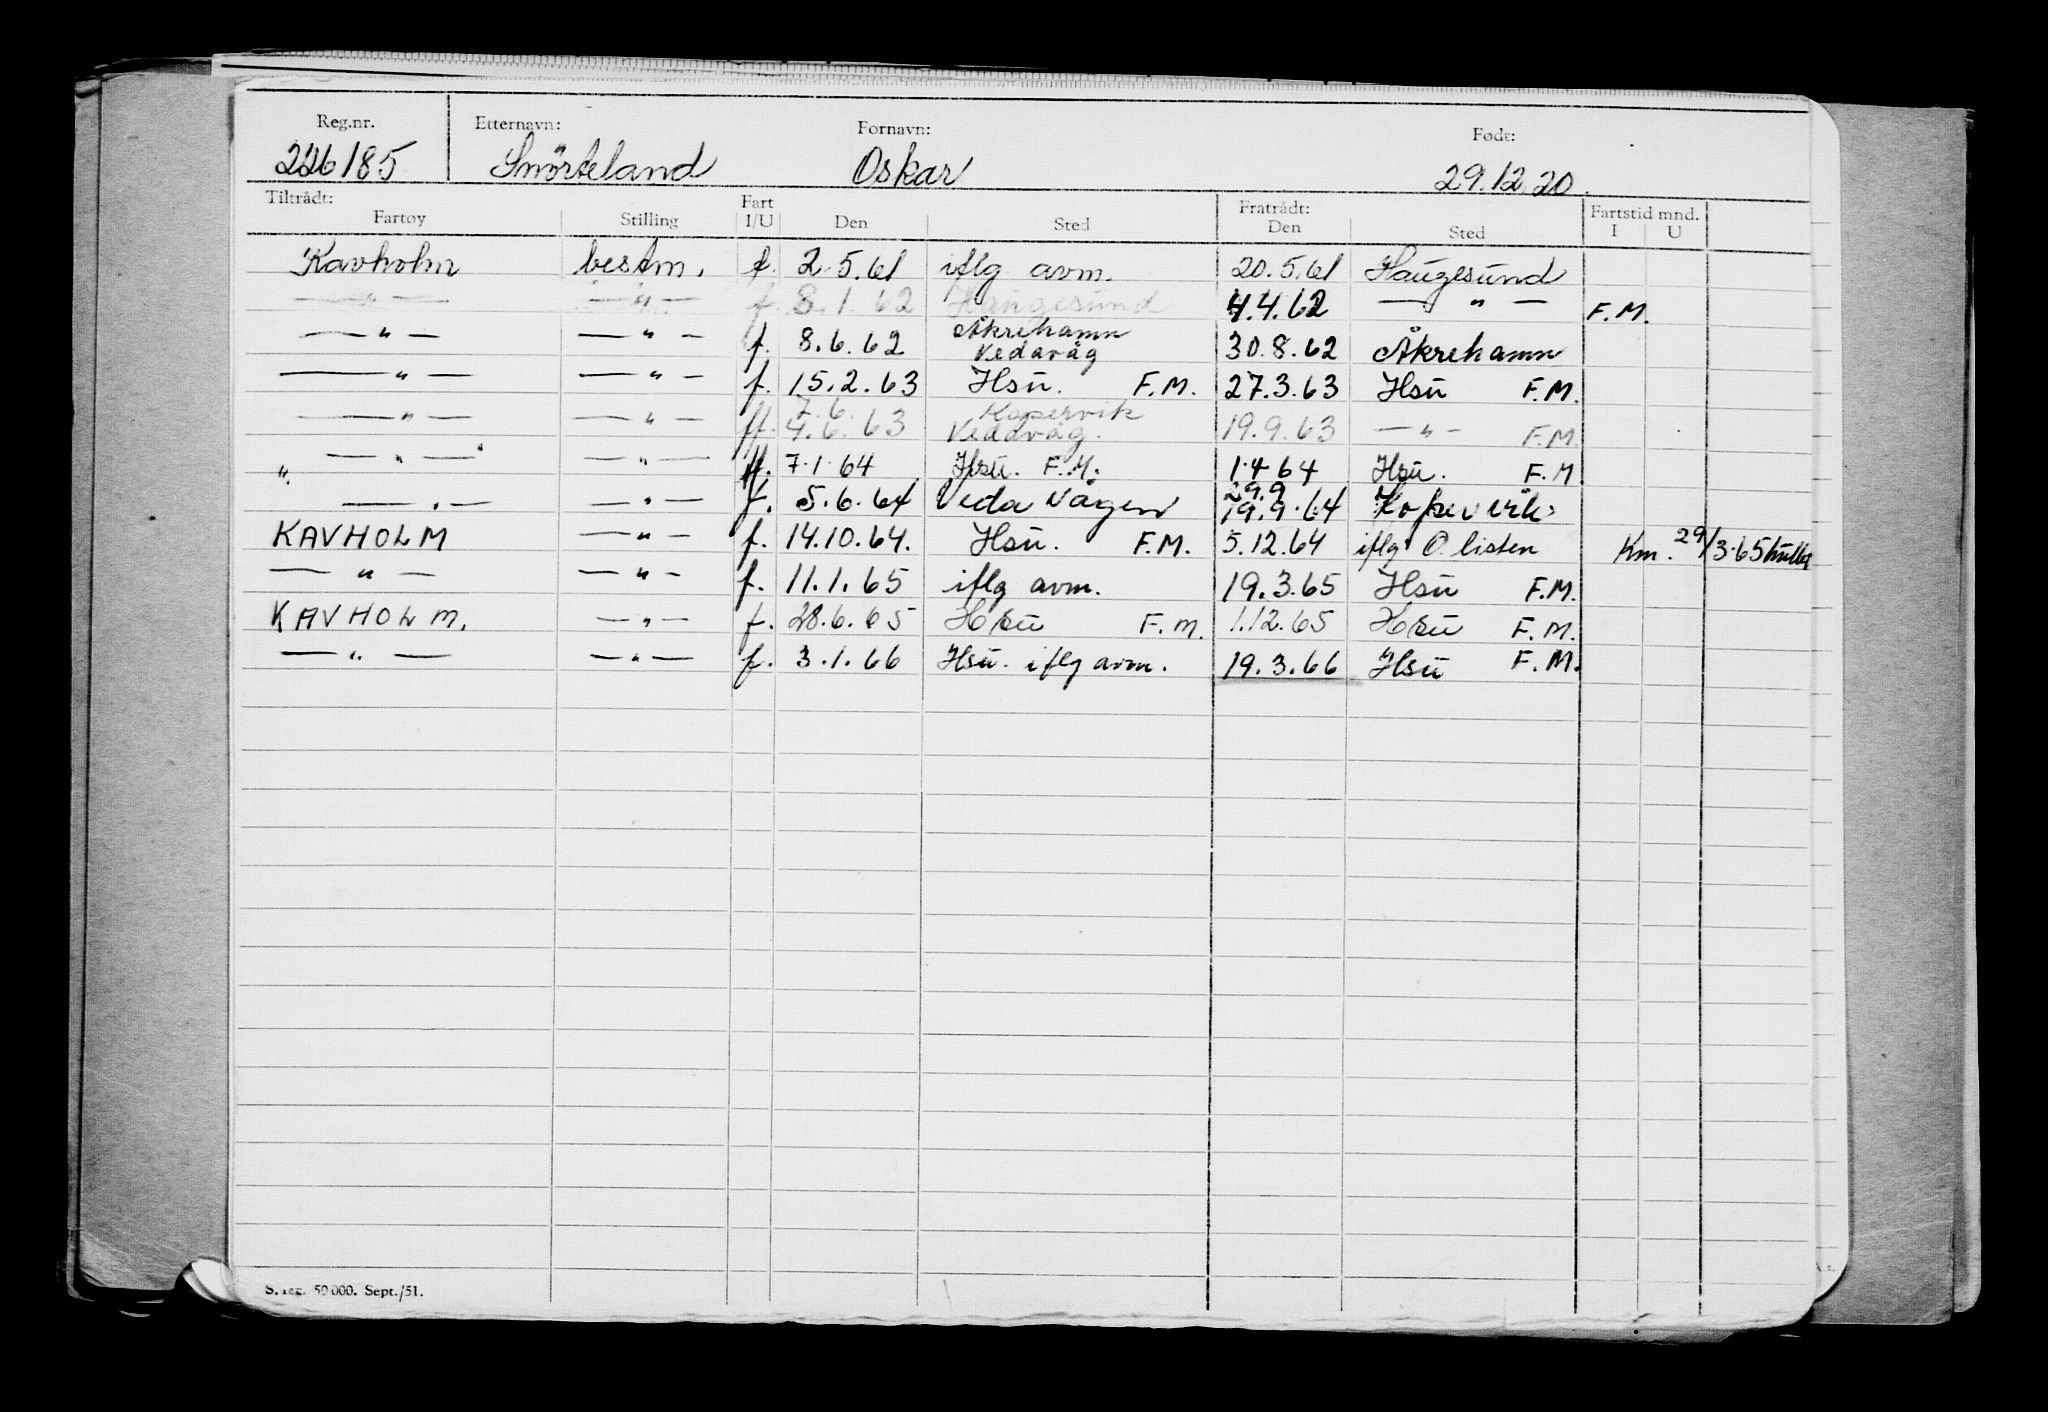 Reg.nr. Etternavn: Fornavn: Født:
226185 Snörteland Oskar 29.12.20.
Tiltrådt: Fart Fratrådt: Fartstid mnd.
Fartøy Stilling I/U Den Sted Den Sted I U
Kavholm bestm. f. 2.5.61 iflg avm. 20.5.61 Haugesund
— " — — " — f. 8.1.62 Haugesund 4.4.62 — " — F.M.
— " — — " — f. 8.6.62 Åkrehamn Vedavåg 30.8.62 Åkrehamn
— " — — " — f. 15.2.63 Hsu. F.M. 27.3.63 Hsu F.M.
— " — — " — ff. 7.6. 4.6.63 Kopervik Vedavåg. 19.9.63 — " — F.M.
— " — — " — ff. 7.1.64 Hsu. F.M. 1.4.64 Hsu. F.M
" — " — — " — f. 5.6.64 Veda Vågen 29.9 19.9.64 Kopervik
KAVHOLM — " — f. 14.10.64. Hsu. F.M. 5.12.64 iflg O. listen Km. 29/3.65
— " — — " — f. 11.1.65 iflg avm. 19.3.65 Hsu F.M.
KAVHOLM. — " — f. 28.6.65 Hsu F.M. 1.12.65 Hsu F.M.
— " — — " — f. 3.1.66 Hsu. iflg avm. 19.3.66 Hsu F.M.
S. reg. 50 000. Sept./51.